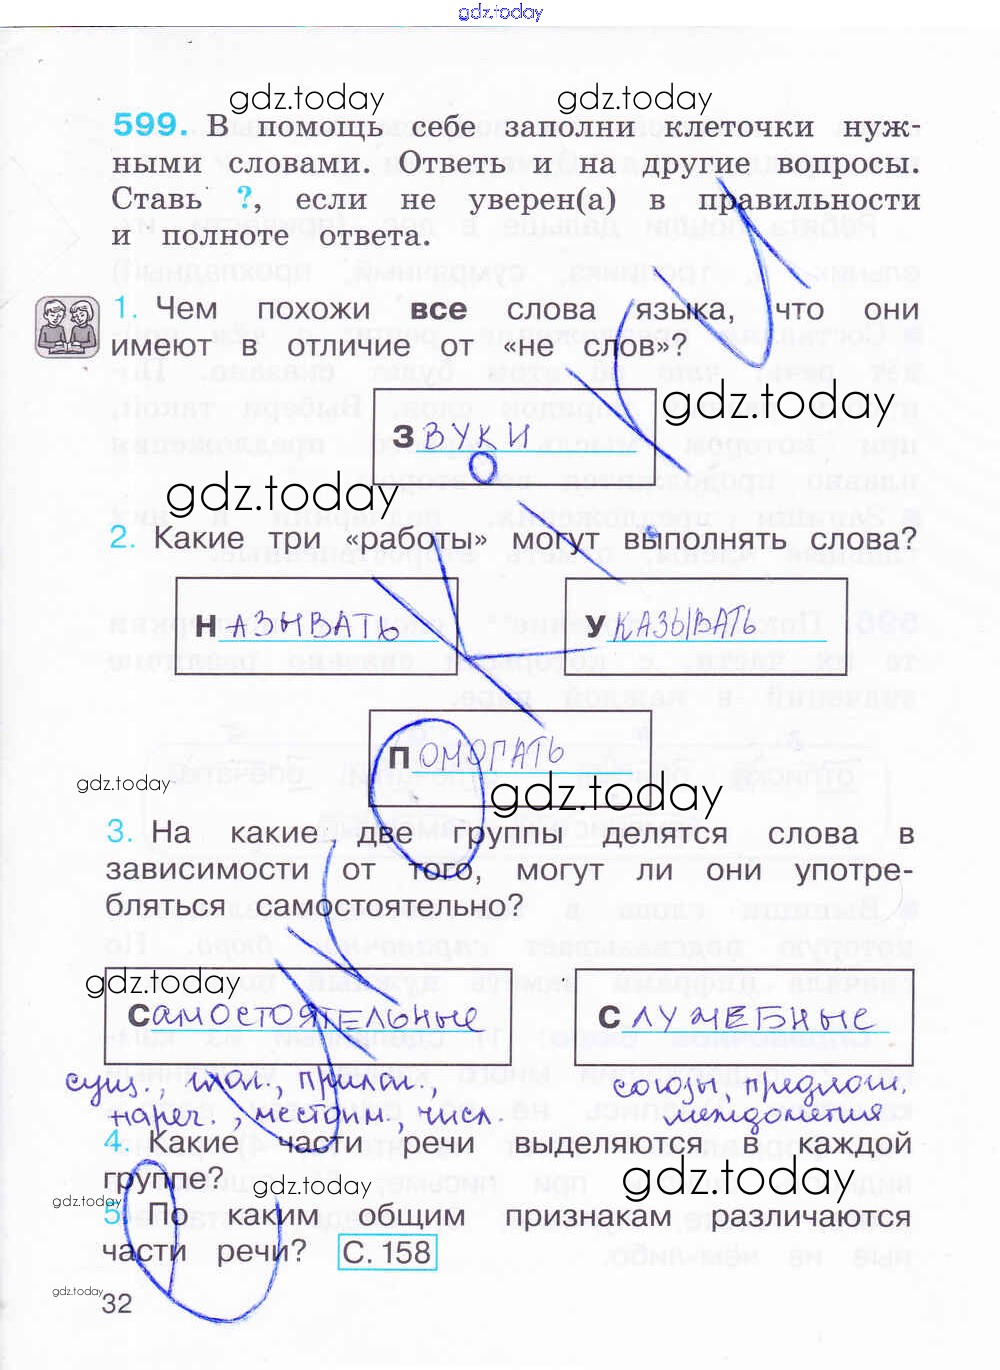 gdz.today
gdz.today gdz.today
599. В помощь себе заполни клеточки нуж-
ными словами. Ответь и на другие вопросы.
Ставь ?, если не уверен(а) в правильности
и полноте ответа.
1. Чем похожи все слова языка, что они
имеют в отличие от «не слов»?
gdz.today
ЗВУКИ
gdz.today
2. Какие три «работы» могут выполнять слова?
НАЗЫВАТЬ УКАЗЫВАТЬ
ПОМОГАТЬ
gdz.today gdz.today
3. На какие две группы делятся слова в
зависимости от того, могут ли они употре-
бляться самостоятельно?
gdz.today gdz.today
САМОСТОЯТЕЛЬНЫЕ СЛУЖЕБНЫЕ
сущ., глаг., прилаг., союзы, предлоги,
нареч., местоим., числ. междометия
4. Какие части речи выделяются в каждой
группе?
gdz.today gdz.today gdz.today
5. По каким общим признакам различаются
части речи? С. 158
gdz.today
32